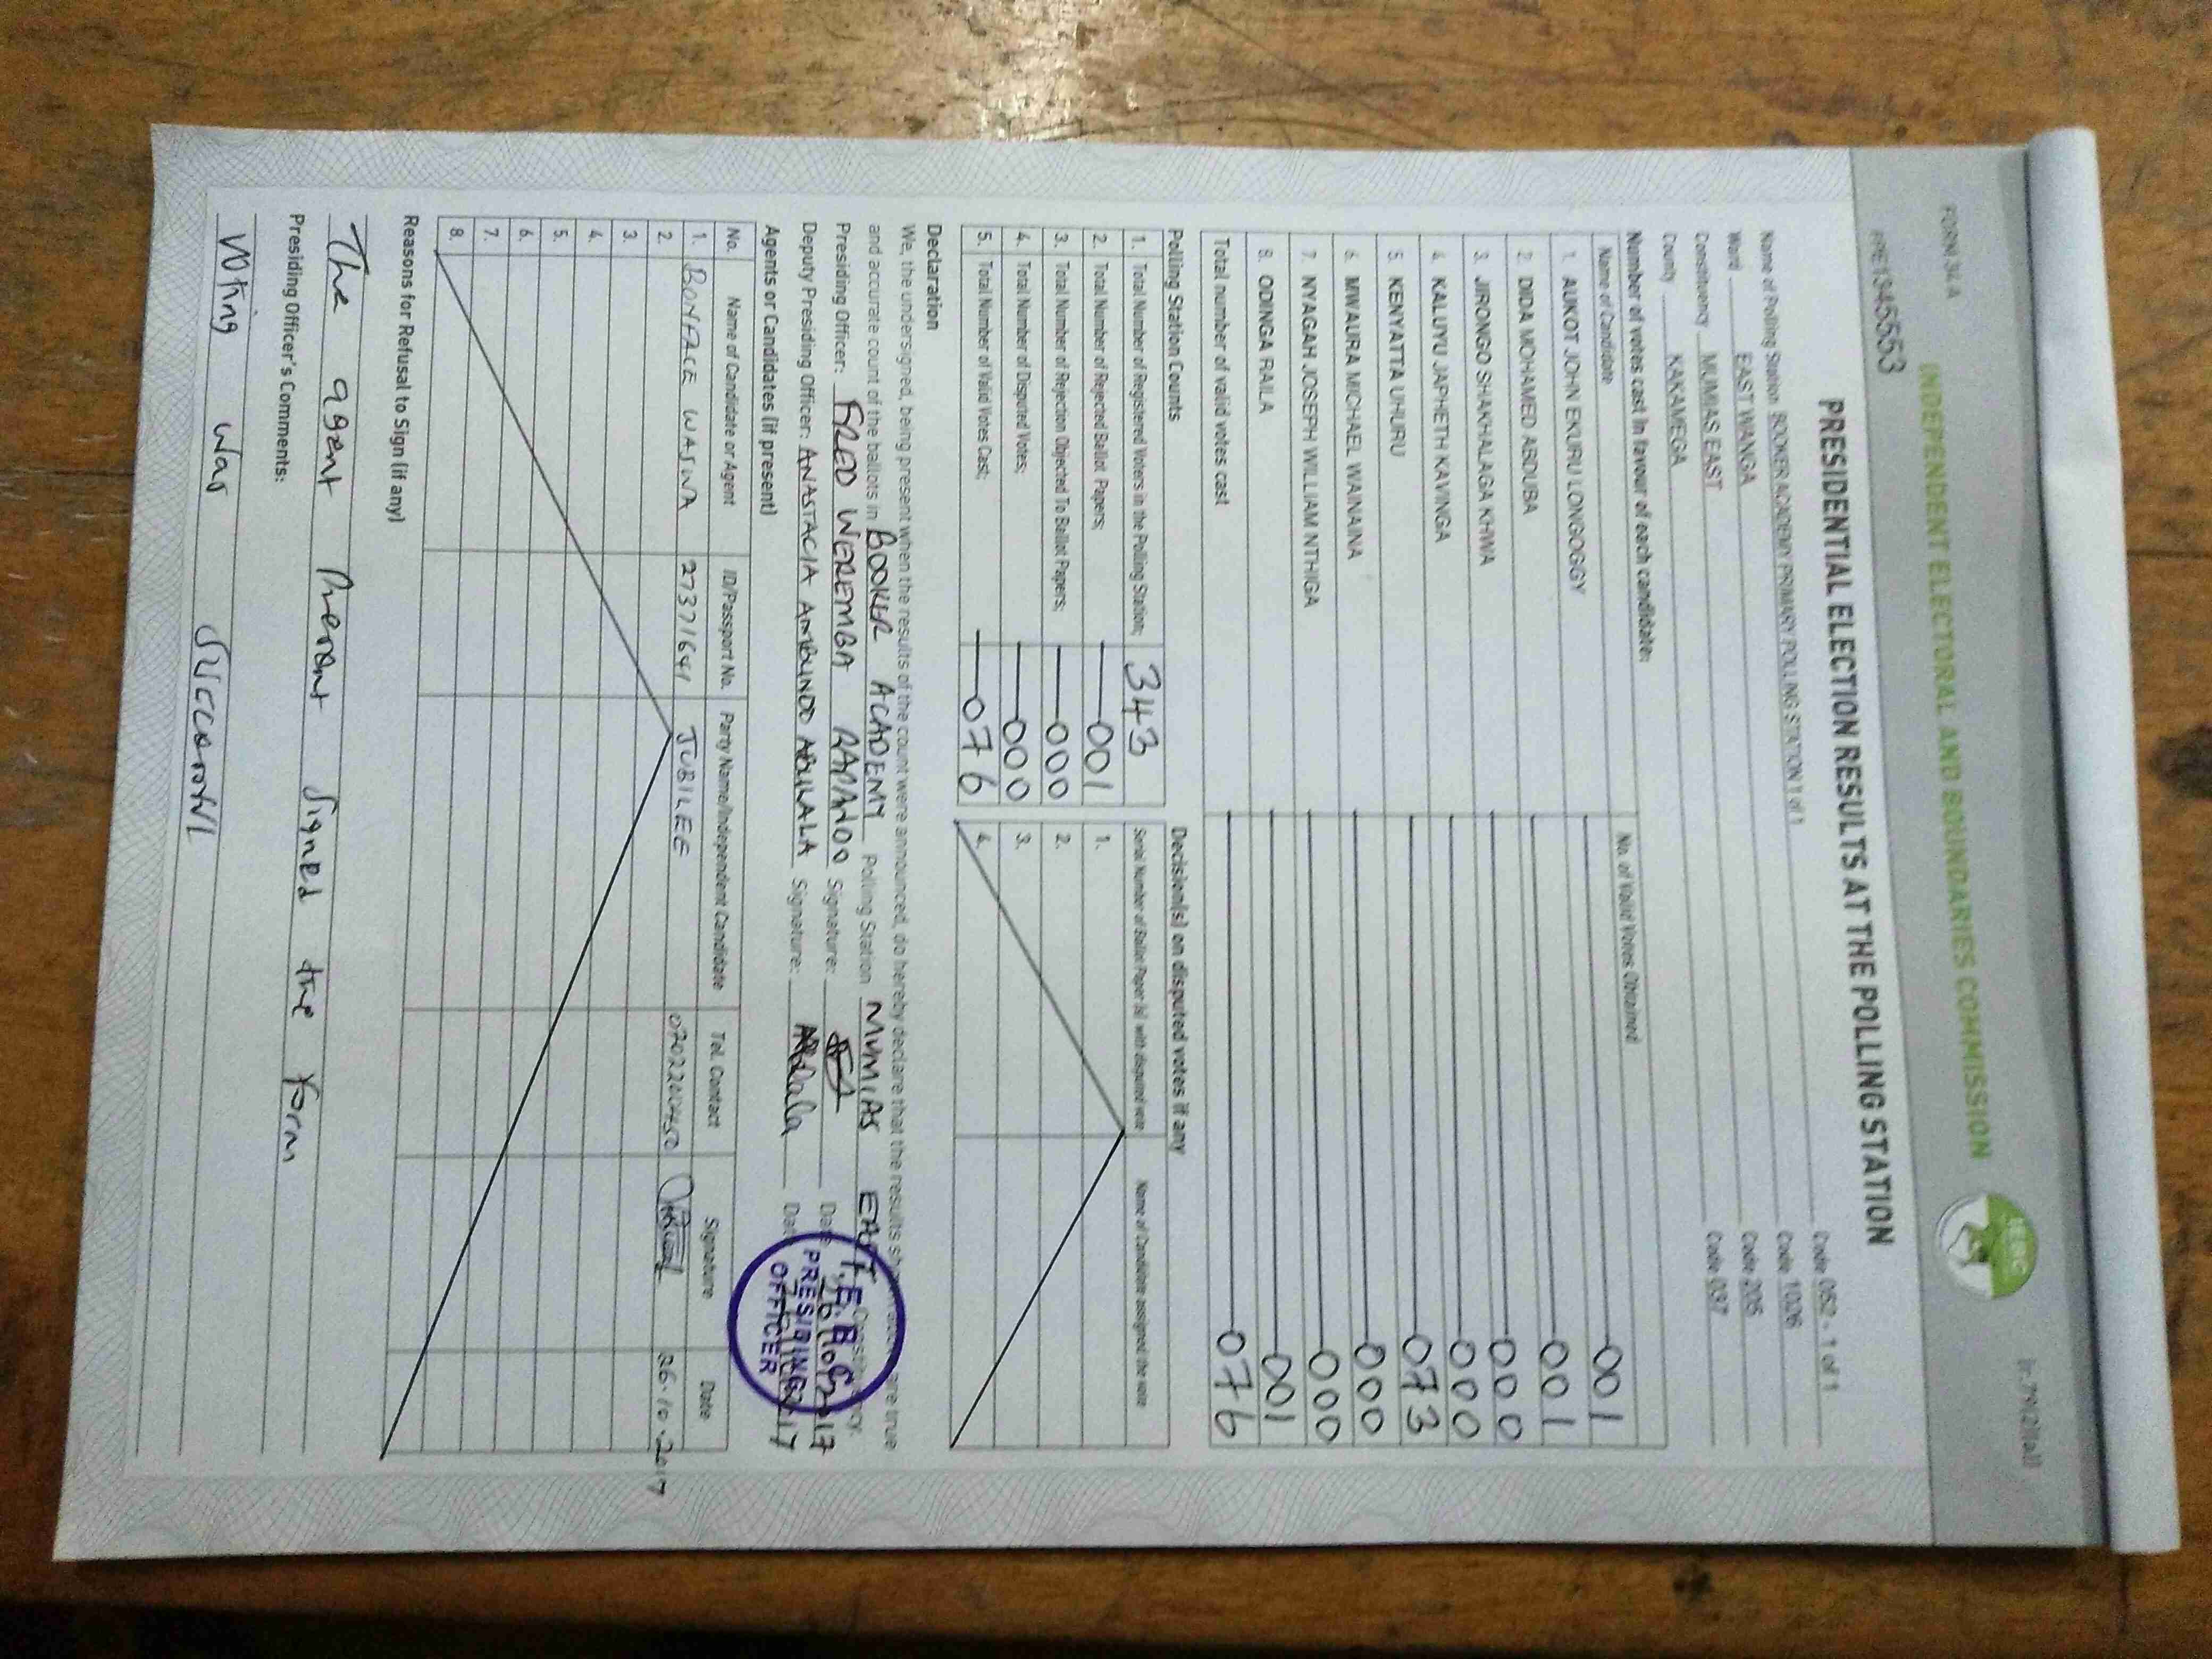 FORM 34 A
INDEPENDENT ELECTORAL AND BOUNDARIES COMMISSION
IEBC
PRESIDENTIAL ELECTION RESULTS AT THE POLLING STATION
Name of Polling Station BOOKER ACADEMY PRIMARY POLLING STATION 1 of 1 Code 052 - 1 of 1
Ward EAST WANGA Code 1026
Constituency MUMIAS EAST Code 205
County KAKAMEGA Code 037
Number of votes cast in favour of each candidate:
Name of Candidate No. of Valid Votes Obtained
1. AUKOT JOHN EKURU LONGOGGY 001
2. DIDA MOHAMED ABDUBA 001
3. JIRONGO SHAKHALAGA KHWA 000
4. KALUYU JAPHETH KAVINGA 000
5. KENYATTA UHURU 073
6. MWAURA MICHAEL WAINAINA 000
7. NYAGAH JOSEPH WILLIAM NTHIGA 000
8. ODINGA RAILA 001
Total number of valid votes cast 076
Polling Station Counts
1. Total Number of Registered Voters in the Polling Station; 343
2. Total Number of Rejected Ballot Papers; 001
3. Total Number of Rejection Objected To Ballot Papers; 000
4. Total Number of Disputed Votes; 000
5. Total Number of Valid Votes Cast; 076
Decision(s) on disputed votes if any
Serial Number of Ballot Paper (s) with disputed vote Name of Candidate assigned the vote
1.
2.
3.
4.
Declaration
We, the undersigned, being present when the results of the count were announced, do hereby declare that the results are true
and accurate count of the ballots in BOOKER ACADEMY Polling Station MUMIAS EAST Constituency.
Presiding Officer: FRED WEREMBA RAPANDO Signature: Date 2017
Deputy Presiding Officer: ANASTACIA AMBUNDO ABULALA Signature: Date
I.E.B.C
PRESIDING
OFFICER
Agents or Candidates (if present)
No. Name of Candidate or Agent ID/Passport No. Party Name/Independent Candidate Tel. Contact Signature Date
1. BONFACE WASWA 27371641 JUBILEE 26.10.2017
2.
3.
4.
5.
6.
7.
8.
Reasons for Refusal to Sign (if any)
The agent Present signed the form
Presiding Officer's Comments:
Voting was successful